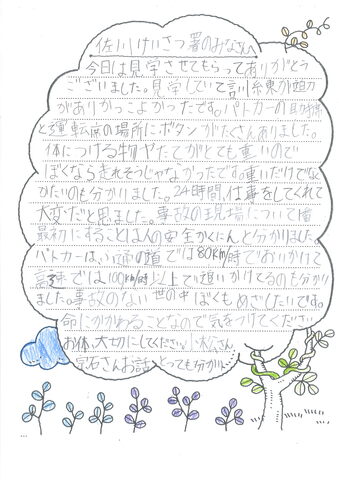 佐川けいさつ署のみなさんへ
今日は見学させてもらってありがとう
ございました。見学していて訓練が迫力
がありかっこよかったです。パトカーの助手席
と運転席の場所にボタンがたくさんありました。
体につける物やたてがとても重いので
ぼくなら走れそうじゃなかったです。重いだけでなく
かたいのも分かりました。24時間仕事をしてくれて
大変だと思いました。事故の現場について
最初にすることは人の安全かくにんと分かりました。
パトカーは、の道では80km/時でおいかけて
高速では100km/時以上で追いかけてるのも分かり
ました。事故のない世の中ぼくもめざしたいです。
命にかかわることなので気をつけてください
お体、大切にしてください。小松さん
お話とっても分かり